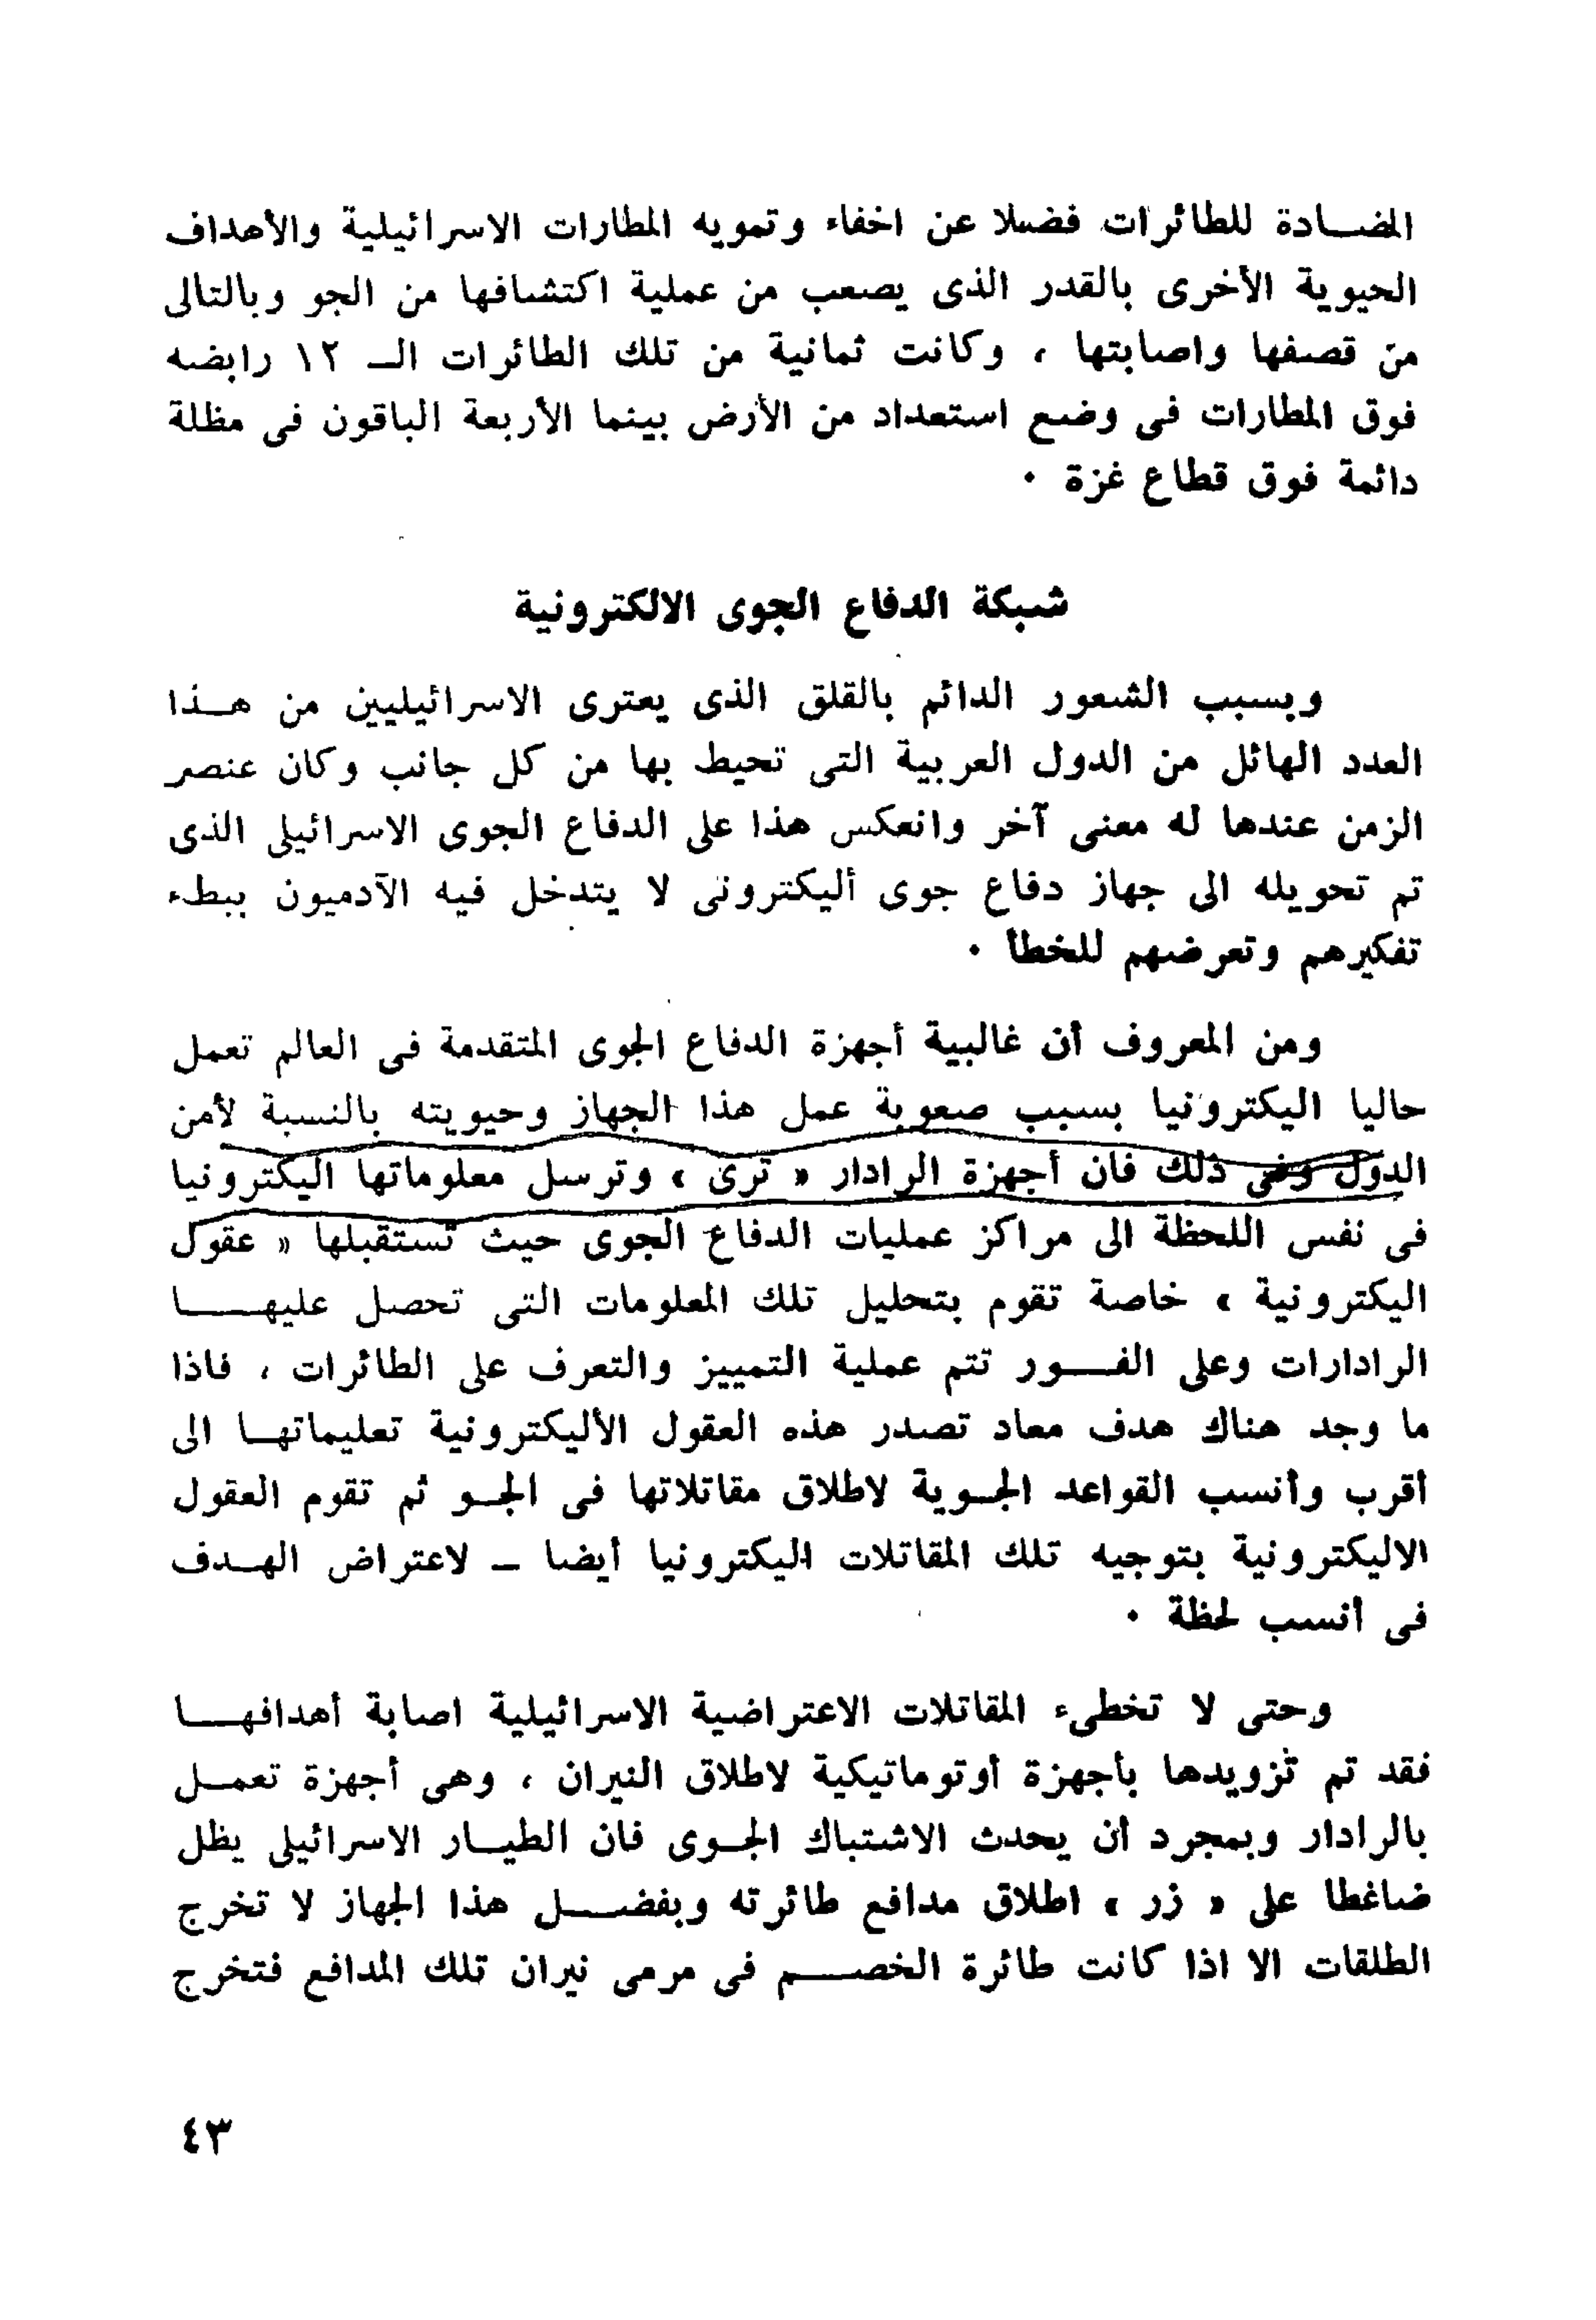 المضادة للطائرات فضلا عن اخفاء وتمويه المطارات الاسرائيلية والأهداف
الحيوية الأخرى بالقدر الذى يصعب من عملية اكتشافها من الجو وبالتالى
من قصفها واصابتها ، وكانت ثمانية من تلك الطائرات الـ ١٢ رابضه
فوق المطارات فى وضع استعداد من الأرض بينما الأربعة الباقون فى مظلة
دائمة فوق قطاع غزة ٠
شبكة الدفاع الجوى الالكترونية
وبسبب الشعور الدائم بالقلق الذى يعترى الاسرائيليين من هذا
العدد الهائل من الدول العربية التى تحيط بها من كل جانب وكان عنصر
الزمن عندها له معنى آخر وانعكس هذا على الدفاع الجوى الاسرائيلى الذى
تم تحويله الى جهاز دفاع جوى أليكترونى لا يتدخل فيه الآدميون ببطء
تفكيرهم وتعرضهم للخطأ ٠
ومن المعروف أن غالبية أجهزة الدفاع الجوى المتقدمة فى العالم تعمل
حاليا اليكترونيا بسبب صعوبة عمل هذا الجهاز وحيويته بالنسبة لأمن
الدول وفى ذلك فان أجهزة الرادار « ترى » وترسل معلوماتها اليكترونيا
فى نفس اللحظة الى مراكز عمليات الدفاع الجوى حيث تستقبلها « عقول
اليكترونية » خاصة تقوم بتحليل تلك المعلومات التى تحصل عليها
الرادارات وعلى الفور تتم عملية التمييز والتعرف على الطائرات ، فاذا
ما وجد هناك هدف معاد تصدر هذه العقول الأليكترونية تعليماتها الى
أقرب وأنسب القواعد الجوية لاطلاق مقاتلاتها فى الجو ثم تقوم العقول
الاليكترونية بتوجيه تلك المقاتلات اليكترونيا أيضا – لاعتراض الهدف
فى أنسب لحظة ٠
وحتى لا تخطىء المقاتلات الاعتراضية الاسرائيلية اصابة أهدافها
فقد تم تزويدها بأجهزة أوتوماتيكية لاطلاق النيران ، وهى أجهزة تعمل
بالرادار وبمجرد أن يحدث الاشتباك الجوى فان الطيار الاسرائيلى يظل
ضاغطا على « زر » اطلاق مدافع طائرته وبفضل هذا الجهاز لا تخرج
الطلقات الا اذا كانت طائرة الخصم فى مرمى نيران تلك المدافع فتخرج
٤٣